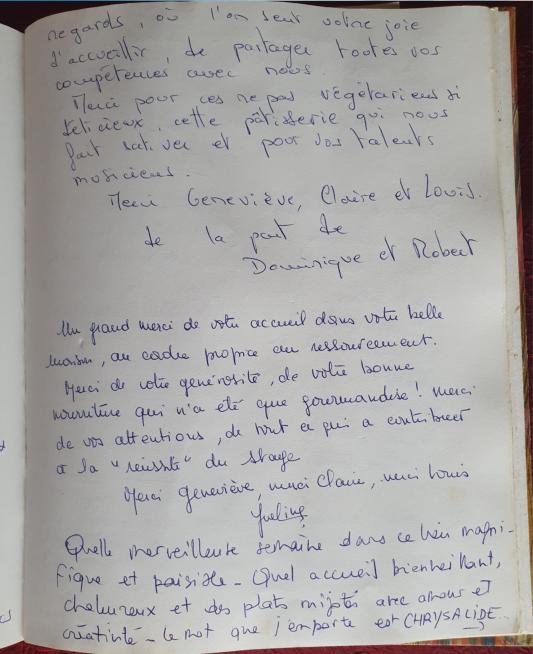 regards, où l'on sent votre joie
d'accueillir, de partager toutes vos
compétences avec nous.
Merci pour ces repas végétariens si
délicieux, cette pâtisserie qui nous
fait saliver et pour vos talents
musiciens.
Merci Geneviève, Claire et Louis.
de la part de
Dominique et Robert
Un grand merci de votre accueil dans votre belle
maison, au cadre propice au ressourcement.
Merci de votre générosité, de votre bonne
nourriture qui n'a été que gourmandise ! merci
de vos attentions, de tout ce qui a contribuer
à la "réussite" du stage
Merci geneviève, merci Claire, merci Louis
Yveline
Quelle merveilleuse semaine dans ce lieu magni-
fique et paisible - Quel accueil bienveillant,
chaleureux et des plats mijotés avec amour et
créativité - le mot que j'emporte est CHRYSALIDE